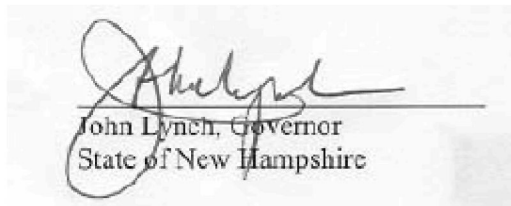 John Lynch
John Lynch, Governor
State of New Hampshire